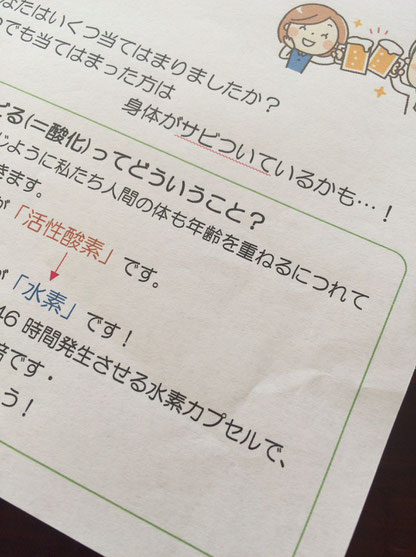 なたはいくつ当てはまりましたか？
つでも当てはまった方は
身体がサビついているかも…！
びる(＝酸化)ってどういうこと？
じように私たち人間の体も年齢を重ねるにつれて
きます。
が「活性酸素」です。
が「水素」です！
46 時間発生させる水素カプセルで、
倍です・
う！